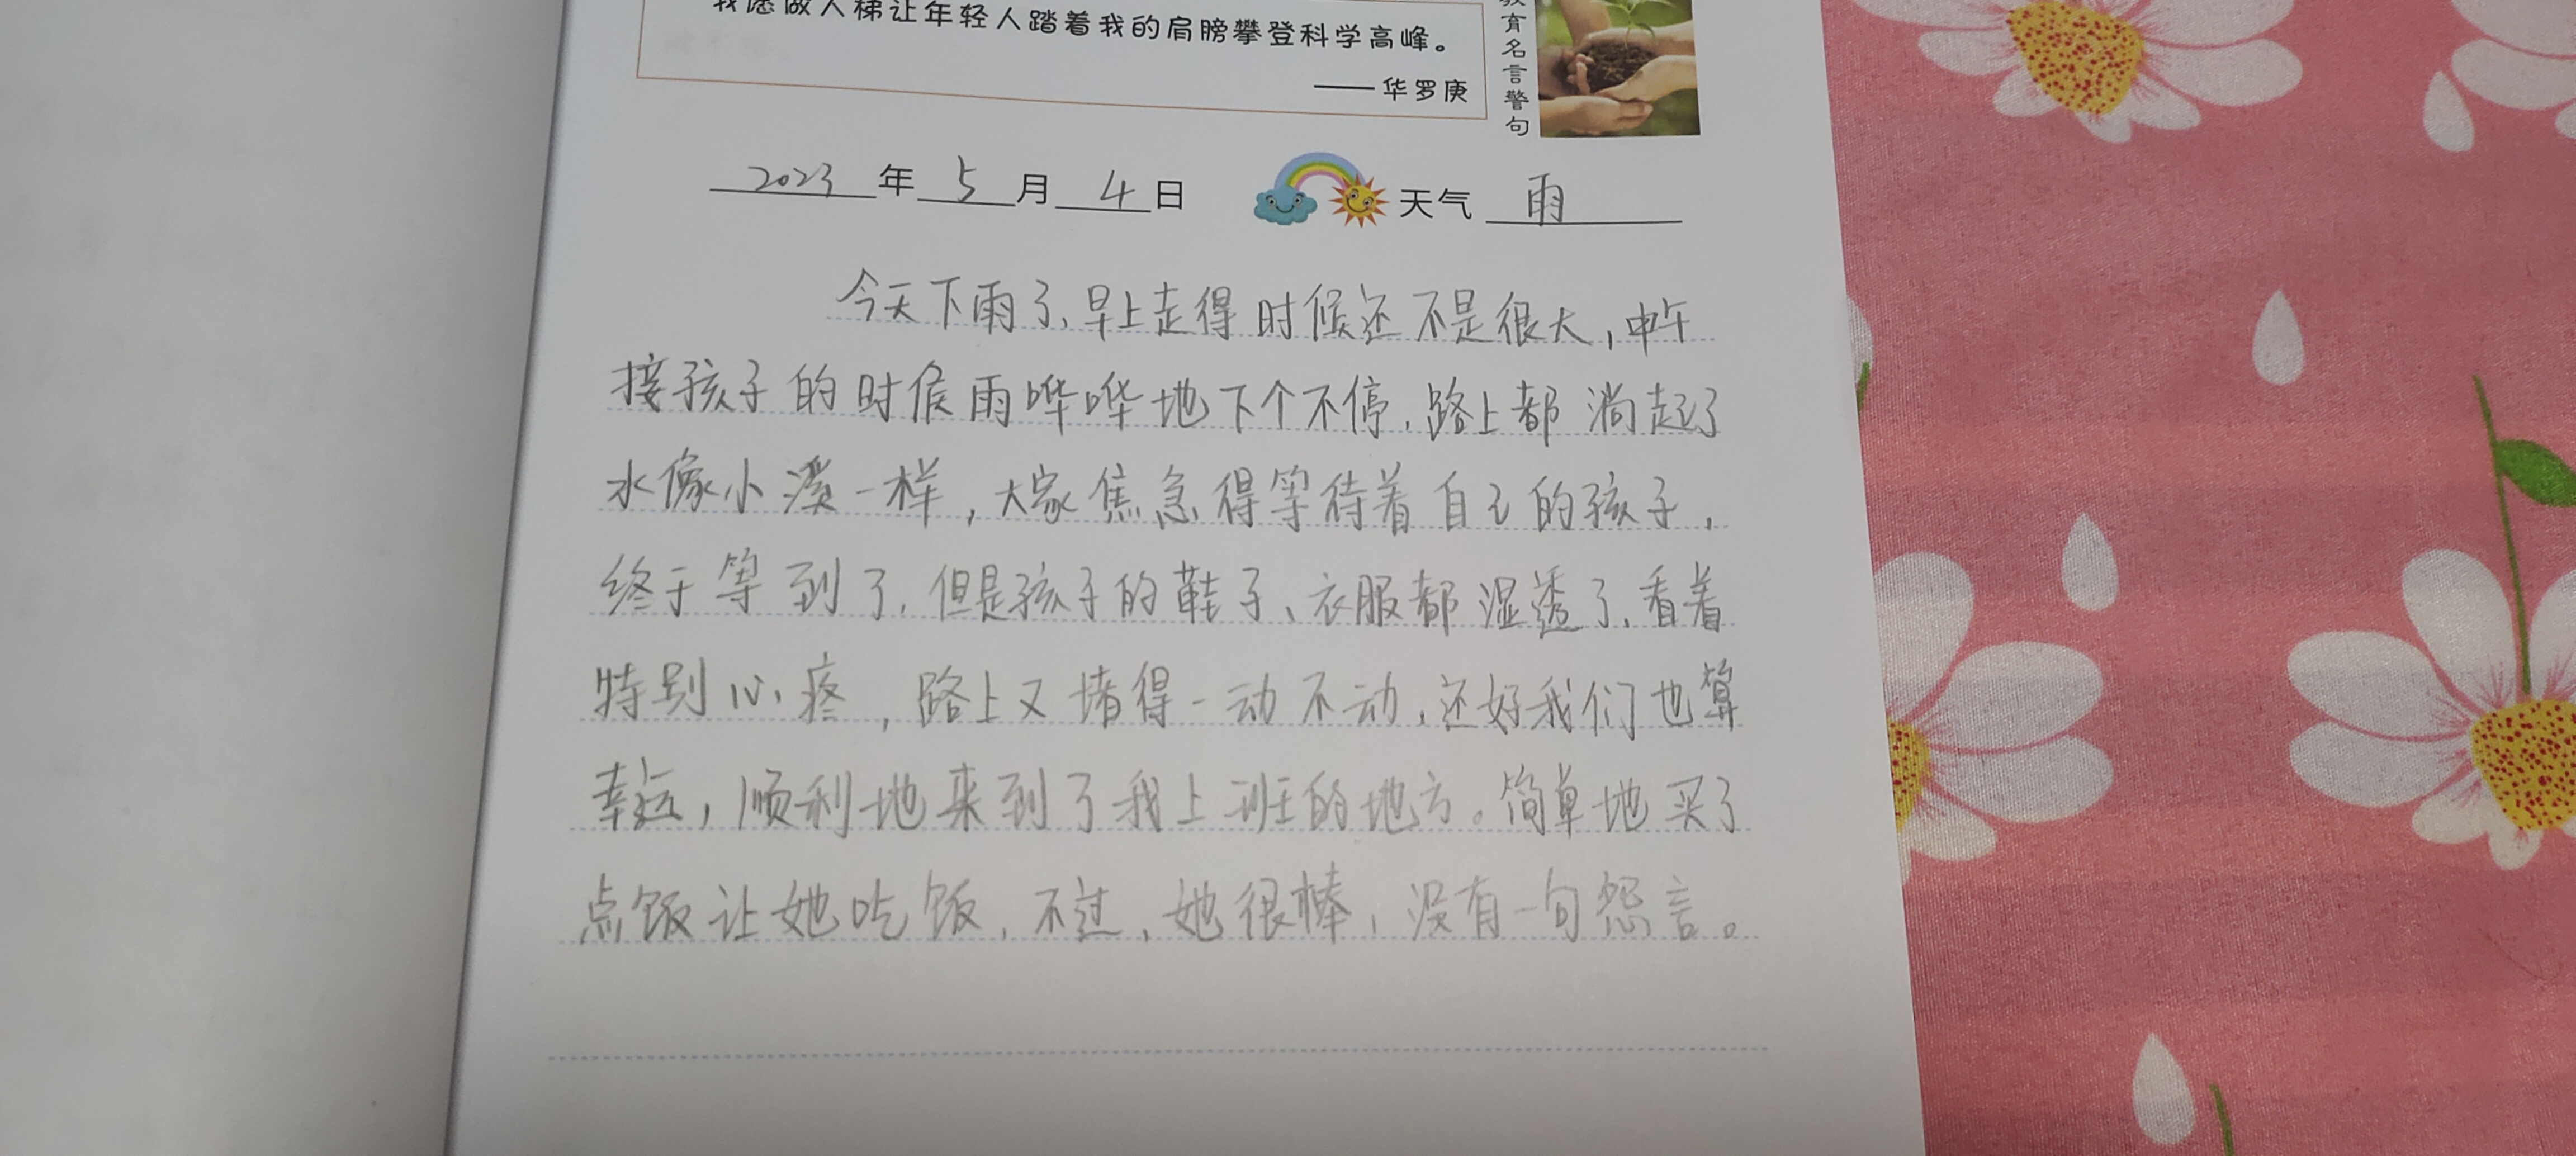 我愿做人梯让年轻人踏着我的肩膀攀登科学高峰。
——华罗庚
教育名言警句
2023年5月4日 天气 雨
今天下雨了,早上走得时候还不是很大,中午
接孩子的时侯雨哗哗地下个不停,路上都淌起了
水像小溪一样,大家焦急得等待着自己的孩子,
终于等到了,但是孩子的鞋子、衣服都湿透了,看着
特别心疼,路上又堵得一动不动,还好我们也算
幸运,顺利地来到了我上班的地方。简单地买了
点饭让她吃饭,不过,她很棒,没有一句怨言。